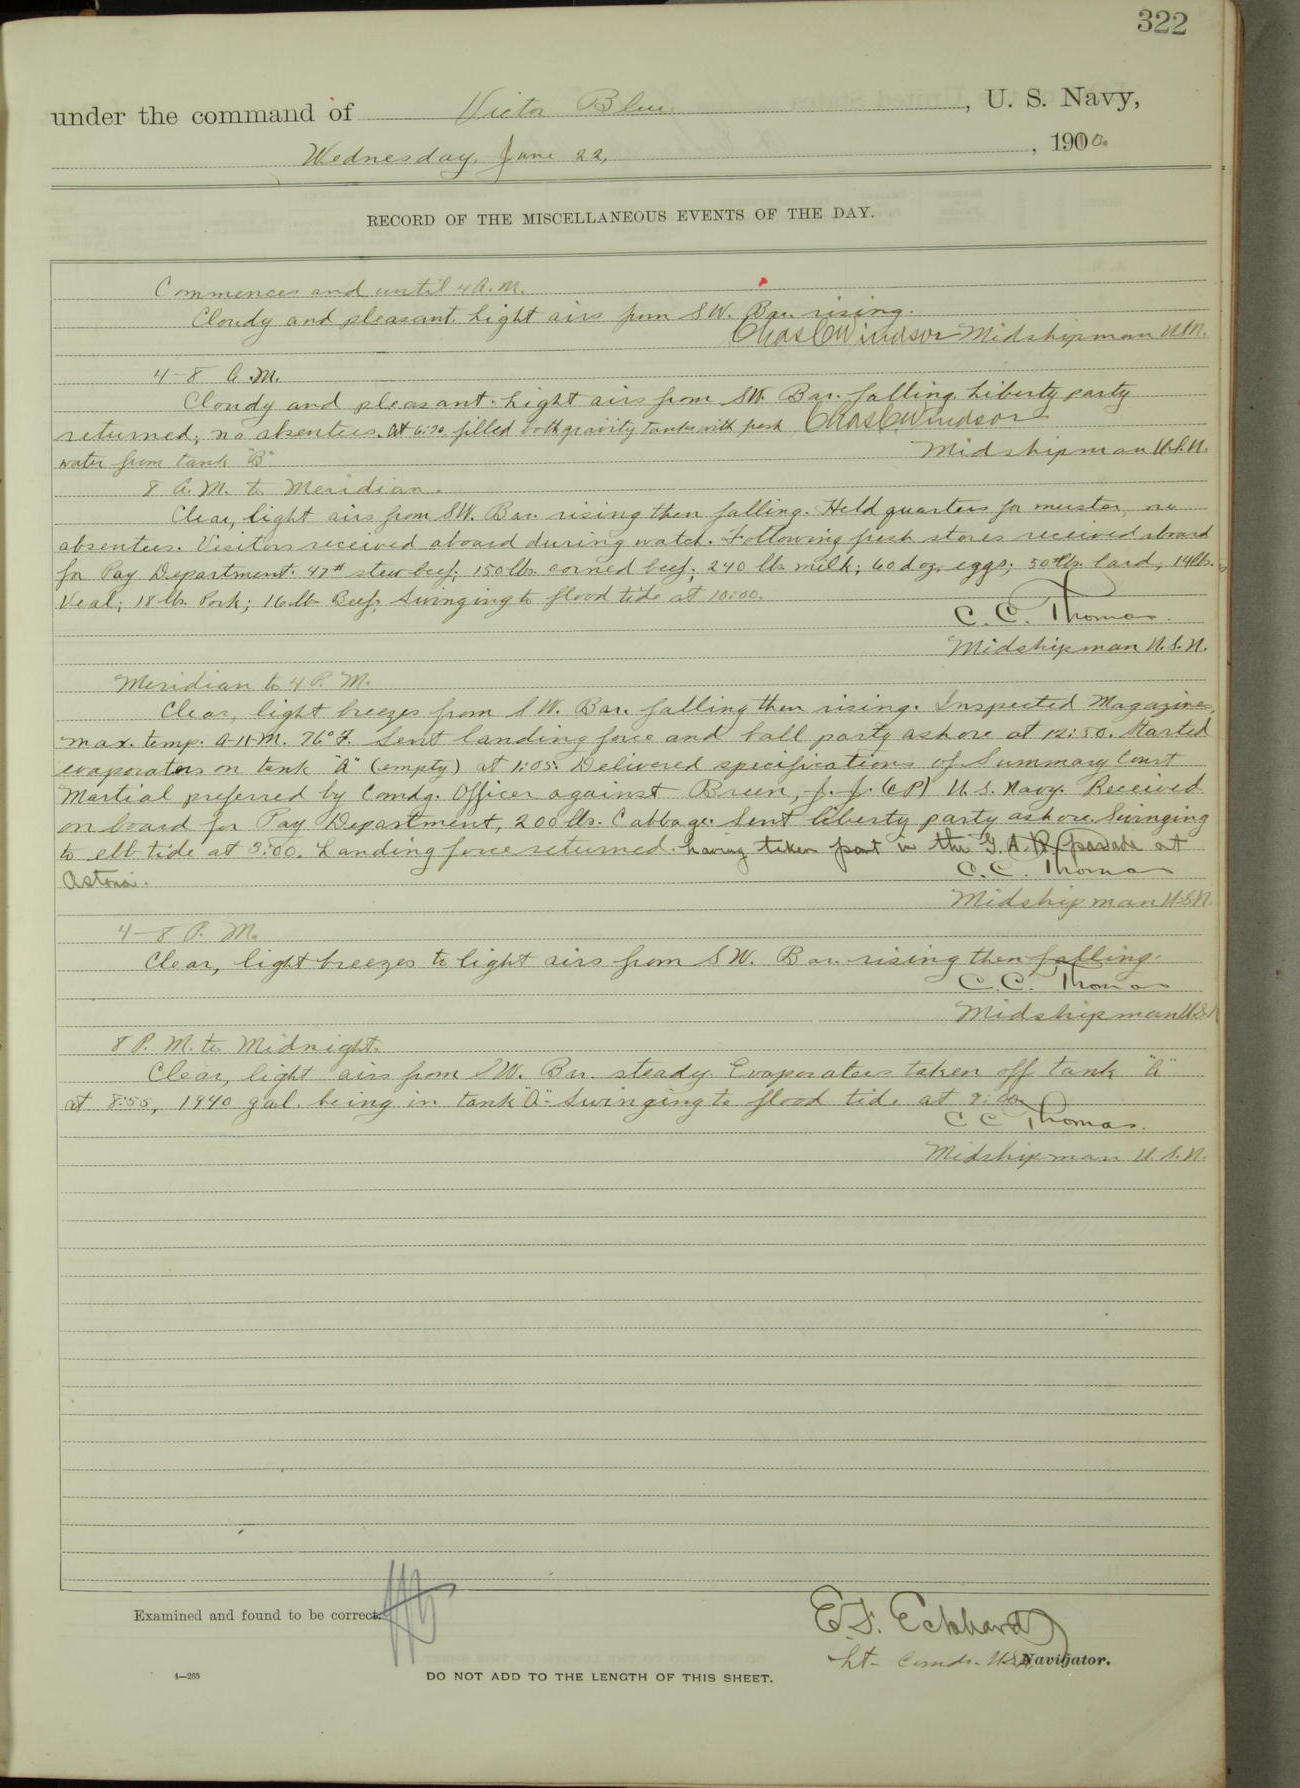 322
under the command of Victor Blue, U. S. Navy,
Wednesday, June 22, , 190
RECORD OF THE MISCELLANEOUS EVENTS OF THE DAY.
Commences and until 4 A.M.
Cloudy and pleasant. Light airs from SW. Bar. rising.
Chas C Windsor Midshipman U.S.N.
4-8 A.M.
Cloudy and pleasant. Light airs from SW. Bar. falling. Liberty party
returned, no absentees. At 6:30, filled both gravity tanks with fresh Chas C Windsor
water from tank "B" Midshipman U.S.N.
8 A.M. to Meridian.
Clear, light airs from SW. Bar. rising then falling. Held quarters for muster, no
absentees. Visitors received aboard during watch. Following fresh stores received aboard
for Pay Department: 47# stew beef; 150 lbs. corned beef; 240 lbs. milk; 60 doz. eggs; 50 lbs. lard, 14 lbs.
Veal; 18 lbs. Pork; 16 lb. Beef. Swinging to flood tide at 10:00.
C. C. Thomas.
Midshipman U.S.N.
Meridian to 4 P. M.
Clear, light breezes from SW. Bar. falling then rising. Inspected Magazines,
max. temp. A-11-M. 76° F. Sent landing force and ball party ashore at 12:50. Started
evaporators on tank "A" (empty) at 1:05. Delivered specifications of Summary Court
Martial preferred by Comdg. Officer against Breen, J. J. (CP) U.S. Navy. Received
on board for Pay Department, 200 lbs. Cabbage. Sent liberty party ashore. Swinging
to ebb tide at 3:00. Landing force returned. having taken part in the G.A.R. parade at
Astoria. C. C. Thomas
Midshipman U.S.N.
4-8 P. M.
Clear, light breezes to light airs from SW. Bar. rising then falling.
C. C. Thomas
Midshipman U.S.N
8 P. M. to Midnight.
Clear, light airs from SW. Bar. steady. Evaporators taken off tank "A"
at 8:55, 1940 gal. being in tank "A". Swinging to flood tide at
C C Thomas.
Midshipman U.S.N.
Examined and found to be correct.
E. F. Eckhardt
Lt. Comdr. U.S.N. Navigator.
4—265
DO NOT ADD TO THE LENGTH OF THIS SHEET.